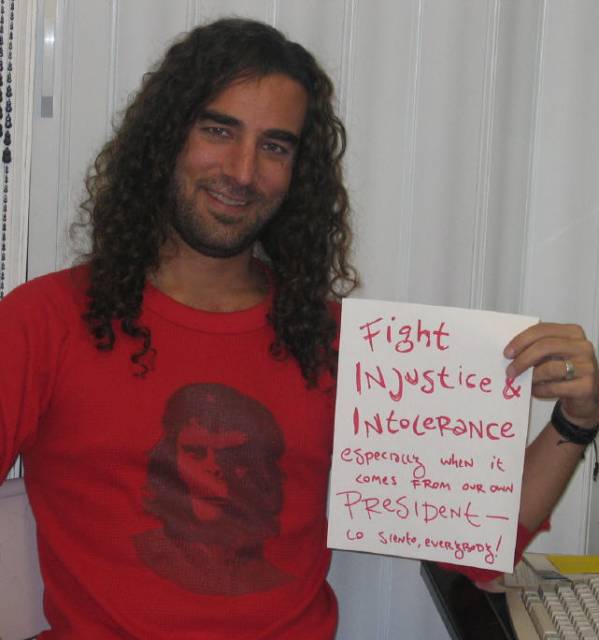 Fight
INJustice &
INtOLERANCE
especially when it
comes FROM OUR OWN
PRESIDENT—
LO Siento, everybody!